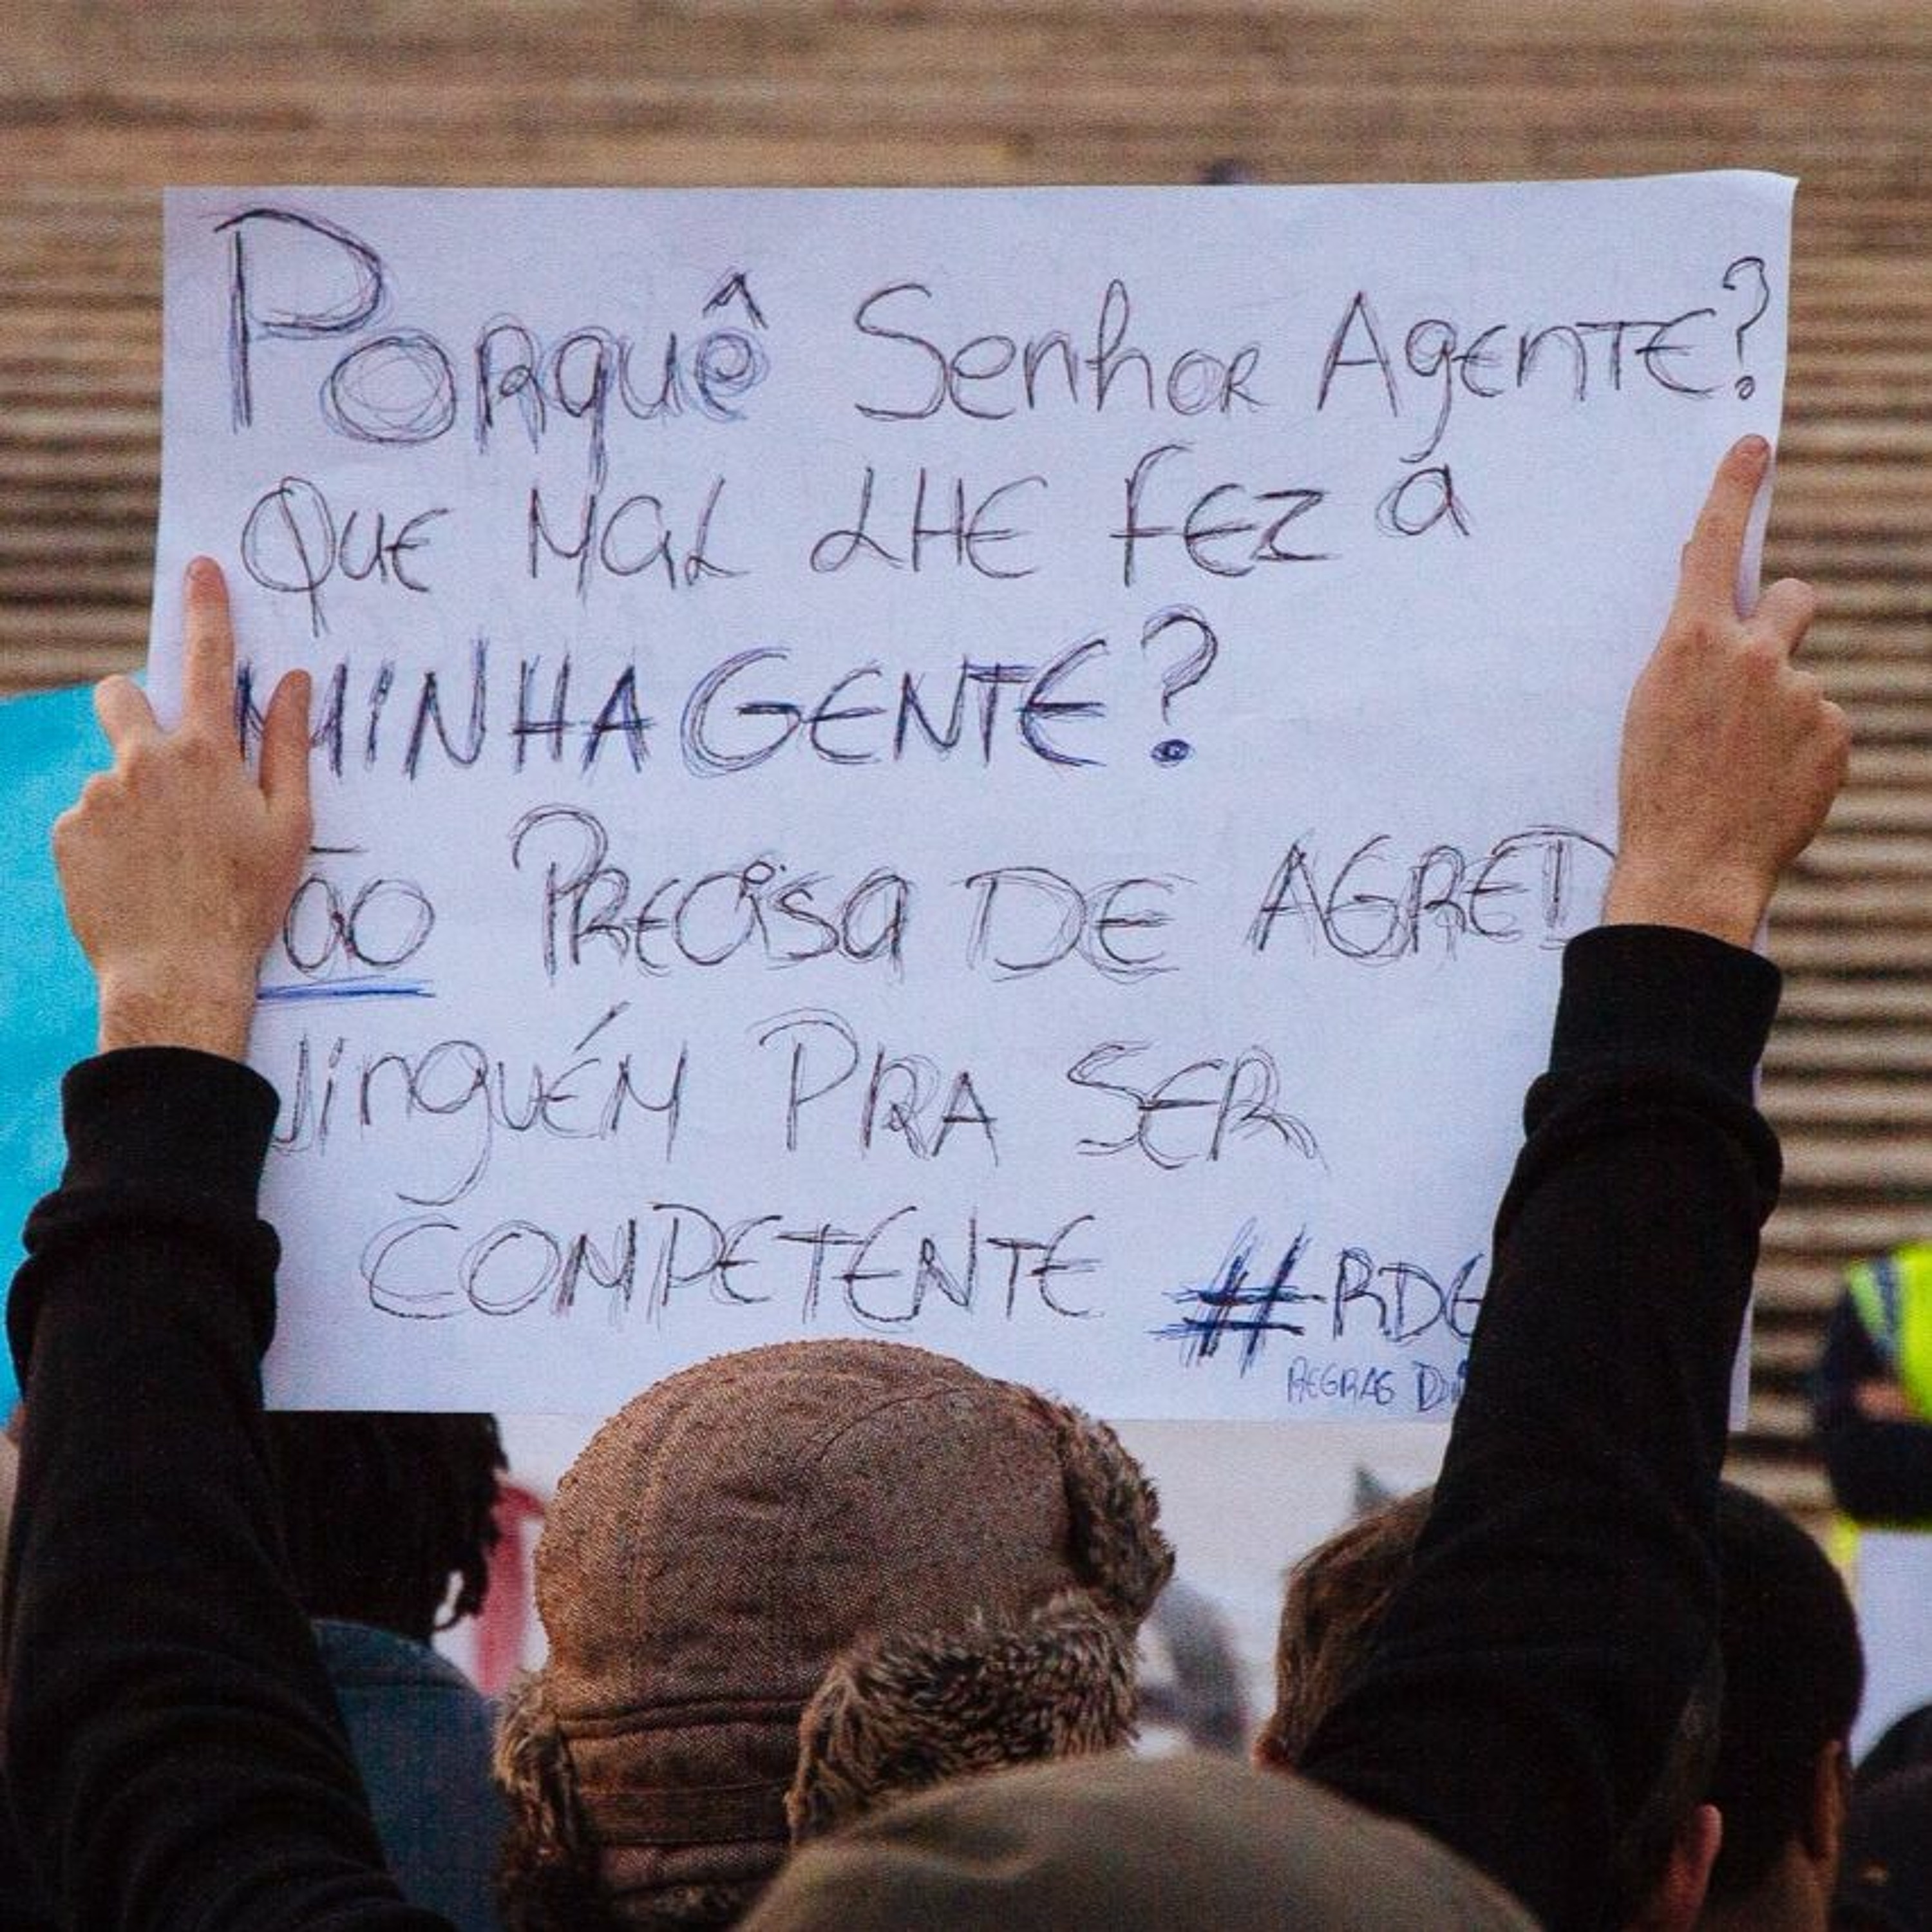 Porquê Senhor Agente?
Que mal lhe fez a
MINHA GENTE?
ão Precisa DE AGRED
Ninguém PRA SER
COMPETENTE #RDG
REGRAS D